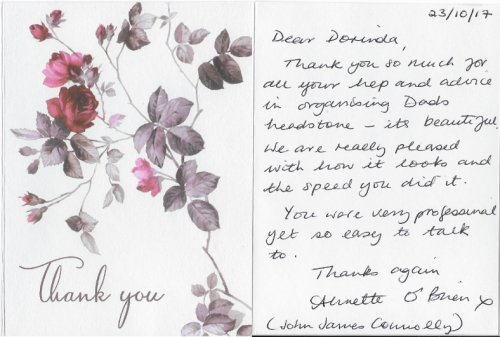 Thank you
23/10/17
Dear Dorinda,
Thank you so much for
all your hep and advice
in organising Dads
headstone – its beautiful
We are really pleased
with how it looks and
the speed you did it.
You were very professional
yet so easy to talk
to.
Thanks again
Annette O'Brien x
(John James Connolly)